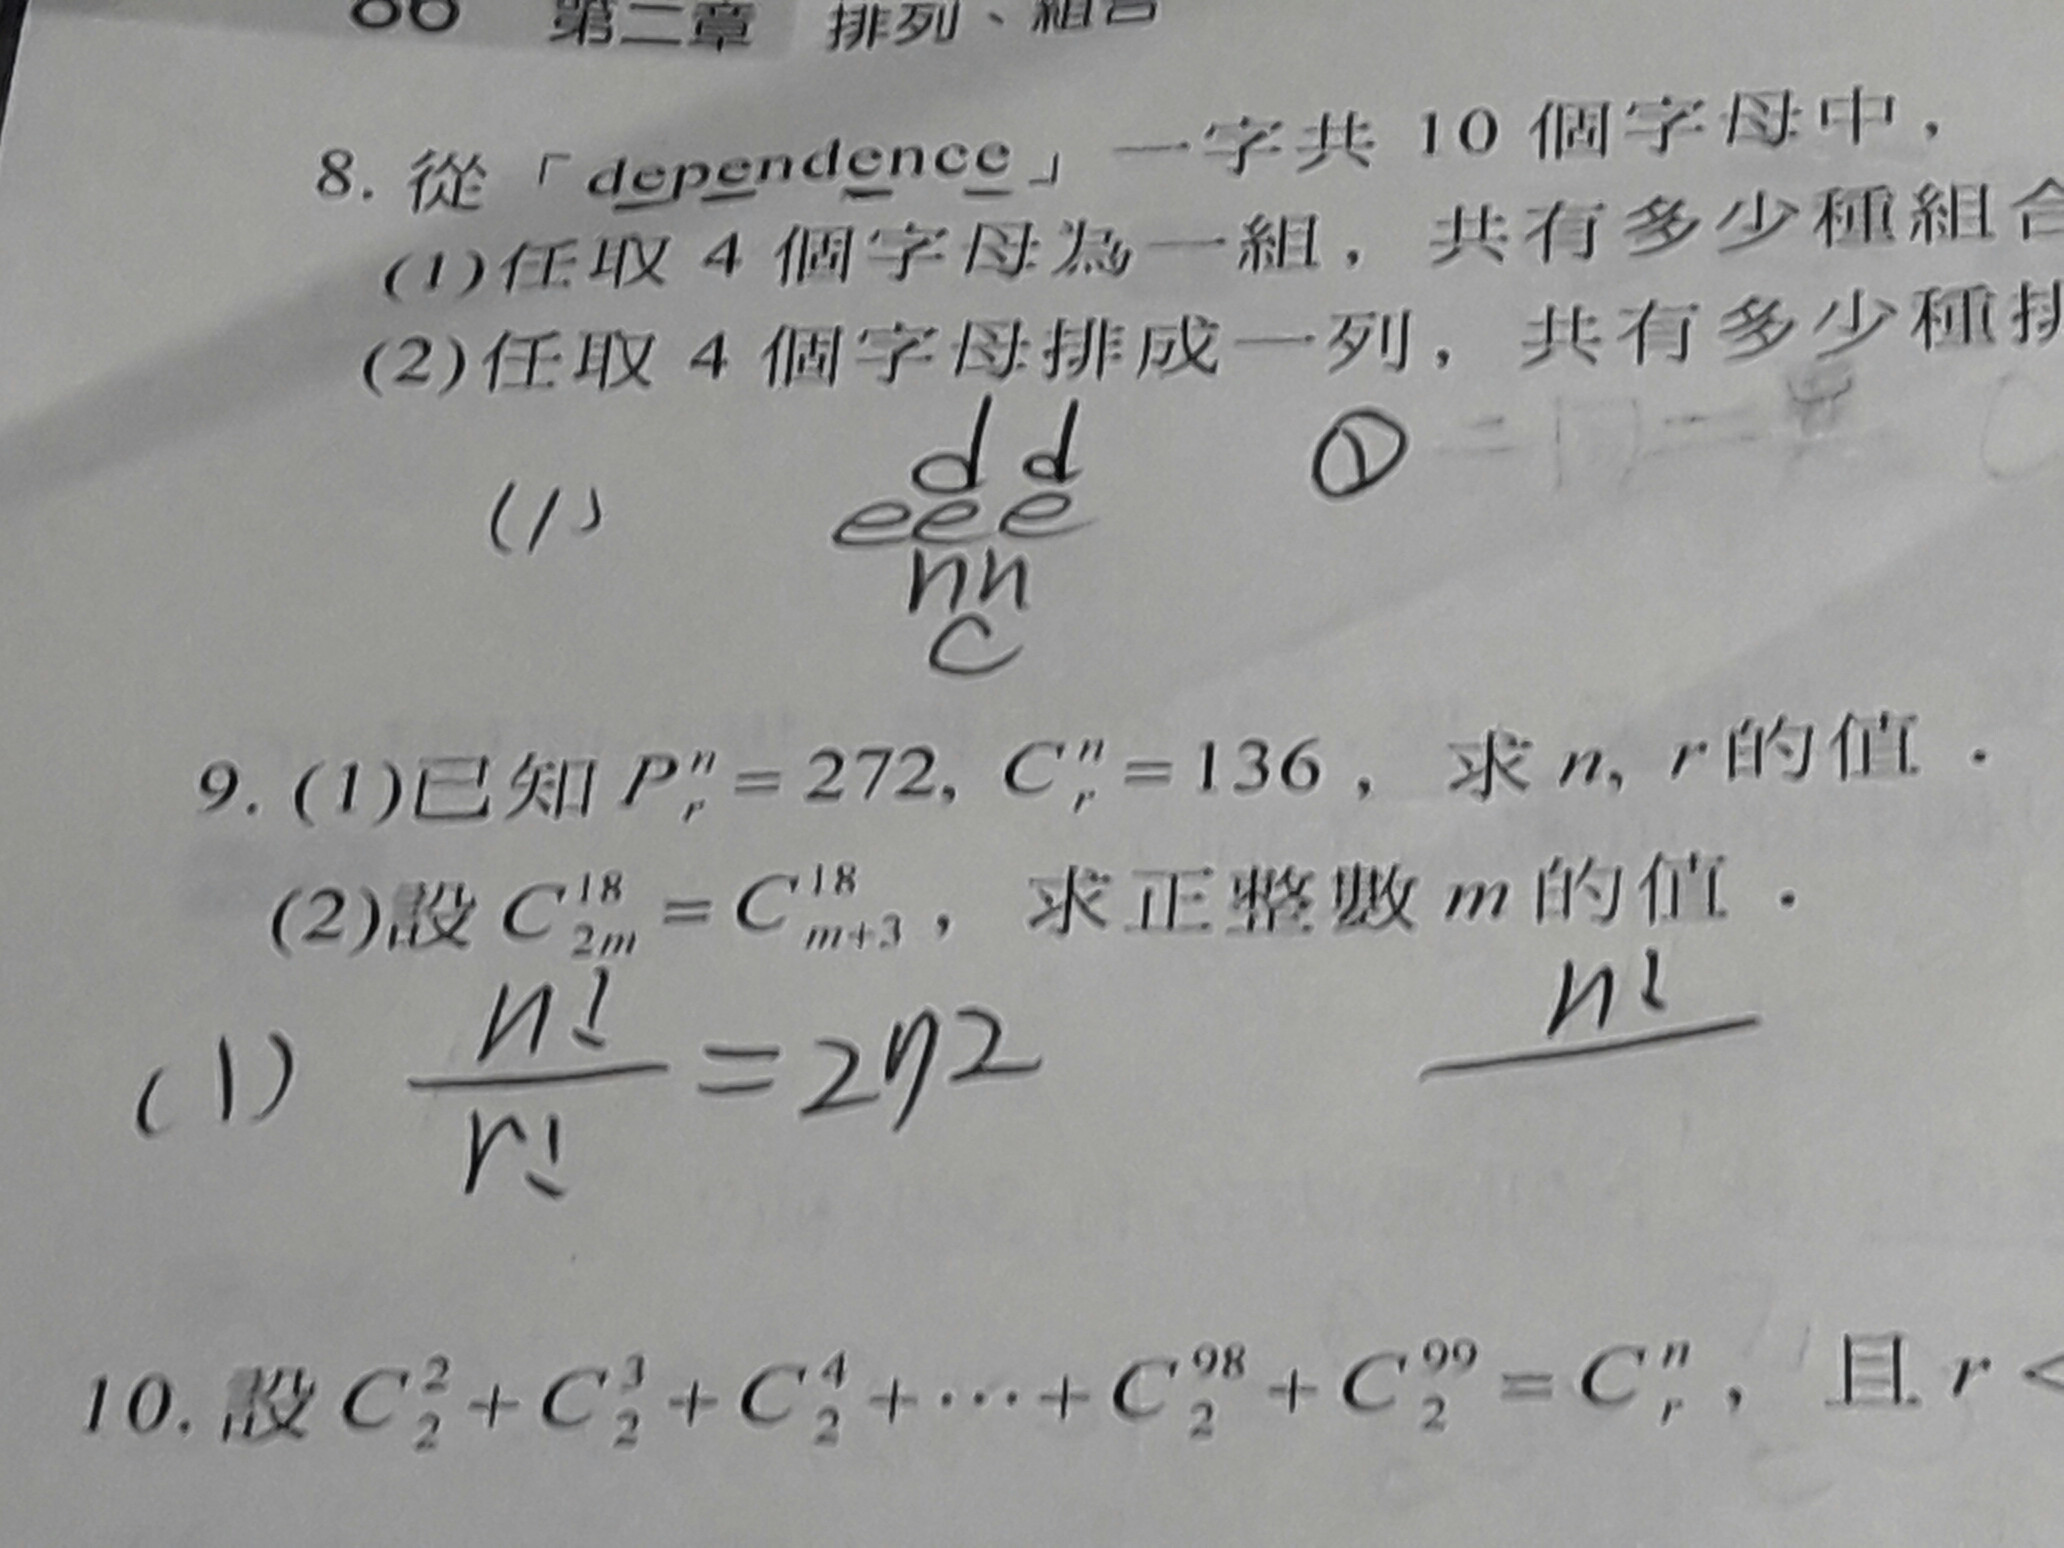 第二章 排列、組合
8. 從「dependence」一字共 10 個字母中，
(1)任取 4 個字母為一組，共有多少種組合
(2)任取 4 個字母排成一列，共有多少種排
d d ①
(1) eee
nn
c
9. (1)已知 P^n_r = 272, C^n_r = 136，求 n, r 的值．
(2)設 C^18_2m = C^18_m+3，求正整數 m 的值．
(1) n!/r! = 272 n!
10. 設 C^2_2 + C^3_2 + C^4_2 + ⋯ + C^98_2 + C^99_2 = C^n_r，且 r <